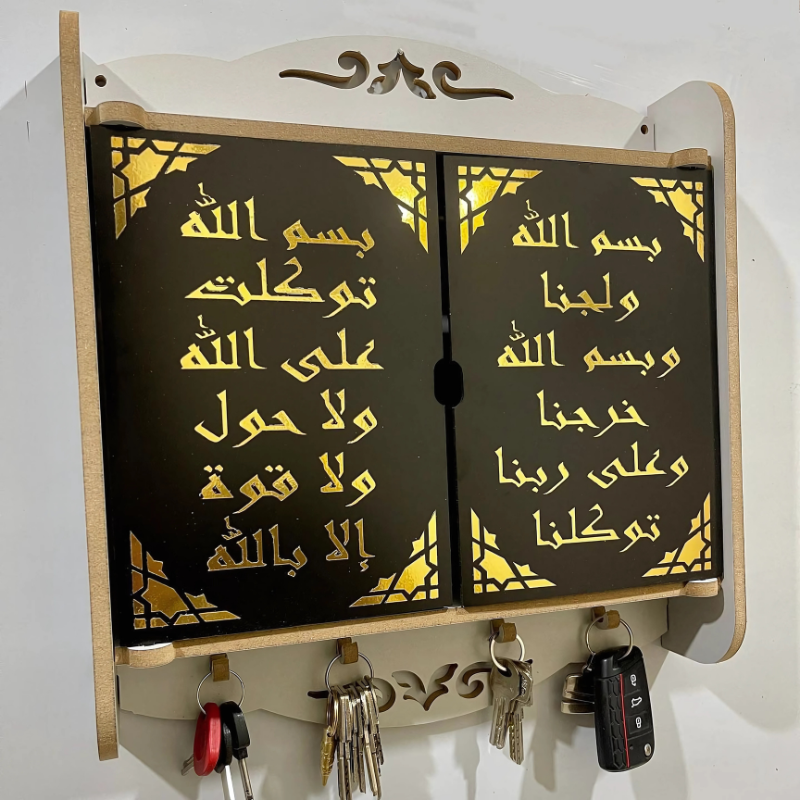 بسم الله
ولجنا
وبسم الله
خرجنا
وعلى ربنا
توكلنا
بسم الله
توكلت
على الله
ولا حول
ولا قوة
إلا بالله